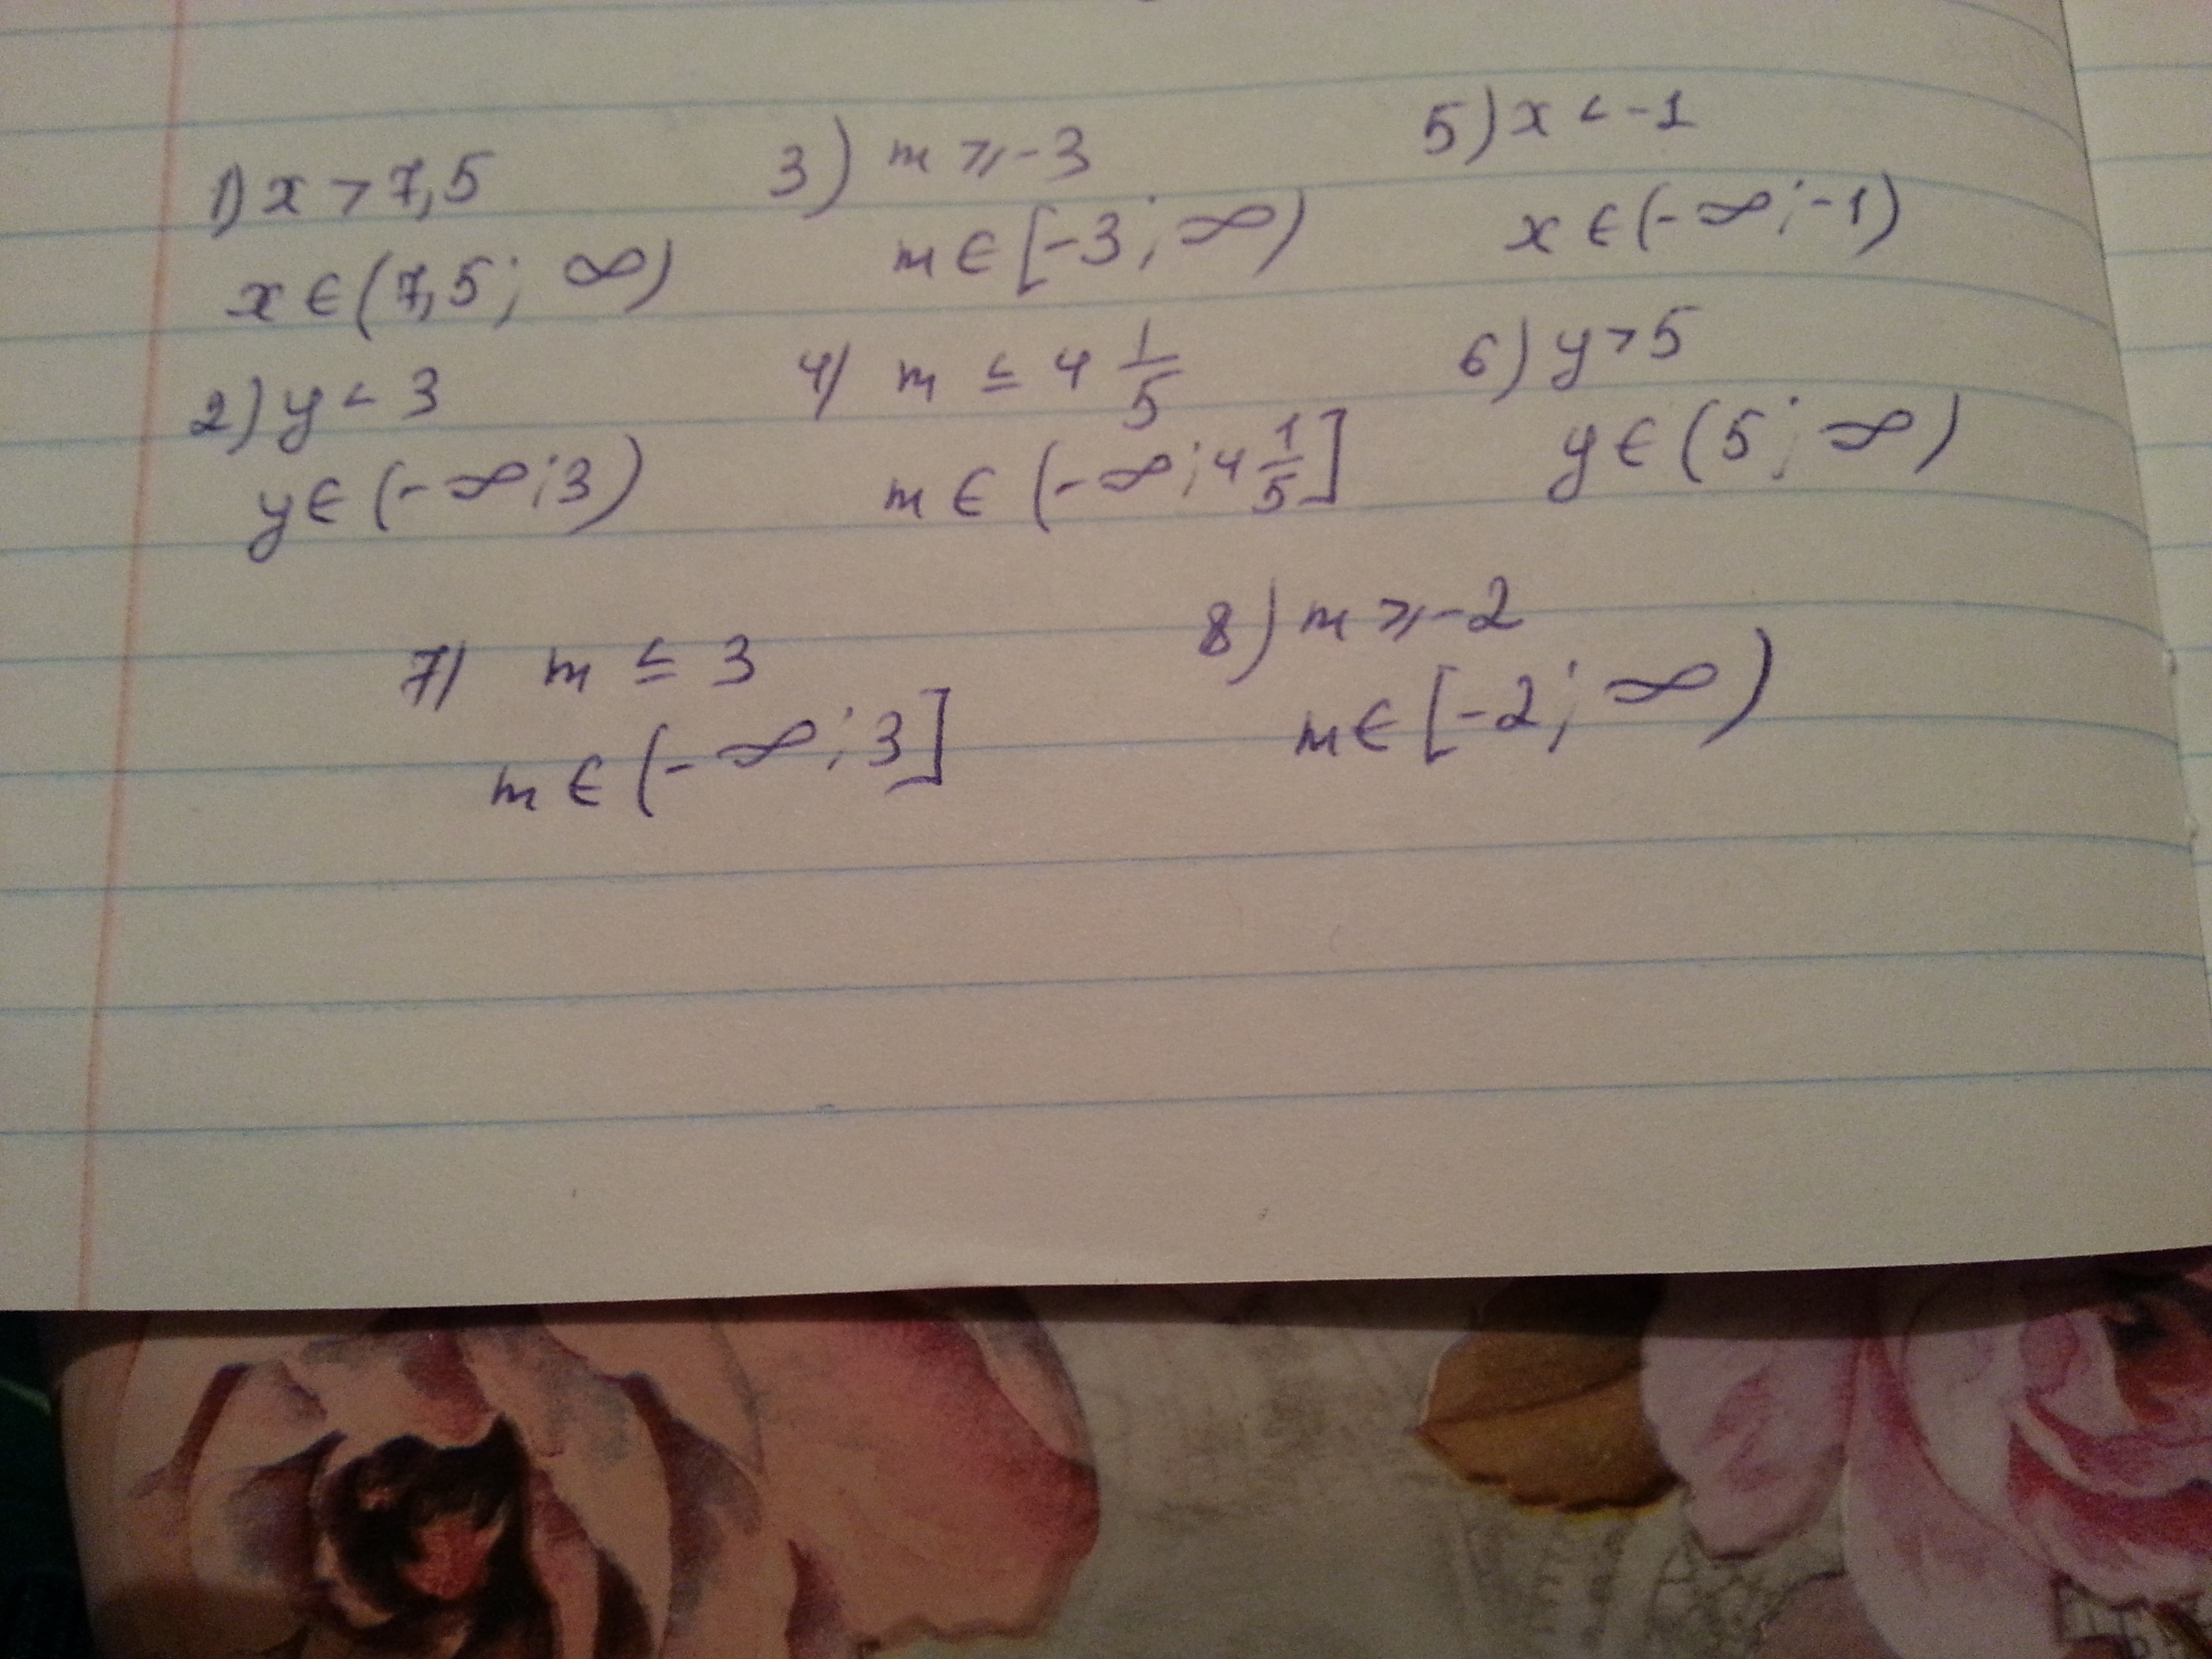 1) x > 7,5
x ∈ (7,5; ∞)
2) y < 3
y ∈ (-∞; 3)
3) m ⩾ -3
m ∈ [-3; ∞)
4) m ≤ 4 1/5
m ∈ (-∞; 4 1/5]
5) x < -1
x ∈ (-∞; -1)
6) y > 5
y ∈ (5; ∞)
7) m ≤ 3
m ∈ (-∞; 3]
8) m ⩾ -2
m ∈ [-2; ∞)